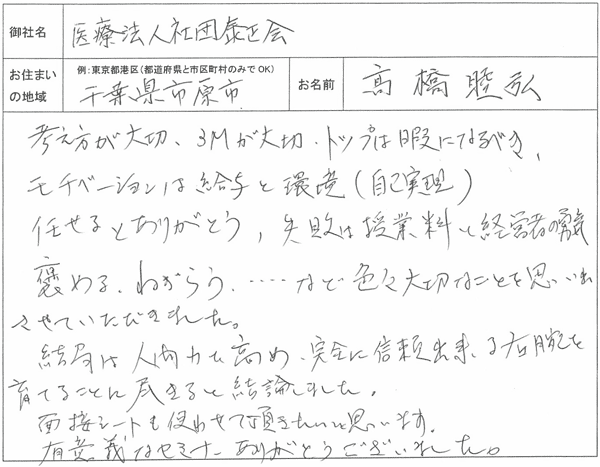 御社名 医療法人社団泰正会
お住まいの地域 例:東京都港区(都道府県と市区町村のみでOK) 千葉県市原市 お名前 髙橋睦弘
考え方が大切、3Mが大切・トップは暇になるべき、
モチベーションは給与と環境(自己実現)
任せるとありがとう,失敗は授業料と経営者の勇気
褒める、ねぎらう、……など色々大切なことを思い出
させていただきました。
結局は人間力を高め、完全に信頼出来る右腕を
育てることに尽きると結論しました。
面接シートも使わせて頂きたいと思います。
有意義なセミナーありがとうございました。